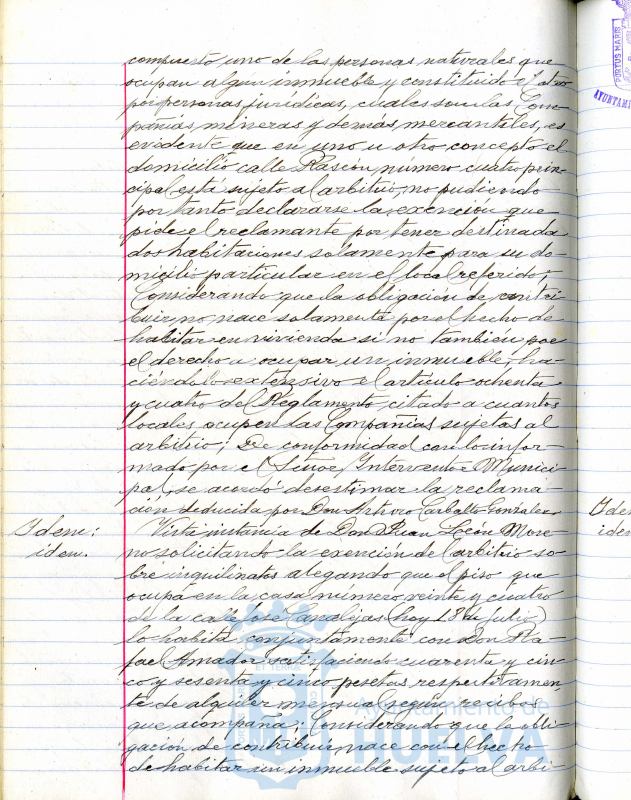 compuesto uno de las personas naturales que
ocupan algun inmueble y constituido el otro
por personas jurídicas, cuales son las Com-
pañías mineras y demás mercantiles, es
evidente que en uno u otro concepto el
domicilio calle Rascón, número cuatro prin-
cipal está sujeto al arbitrio, no pudiendo
por tanto declararse la exención que
pide el reclamante por tener destinada
dos habitaciones solamente para su do-
micilio particular en el local referido;
Considerando que la obligación de contri-
buir, no nace solamente por el hecho de
habitar en vivienda si no también por
el derecho a ocupar un inmueble, ha-
ciéndolo extensivo el artículo ochenta
y cuatro del Reglamento citado a cuantos
locales ocupen las Compañías sujetas al
arbitrio; De conformidad con lo infor-
mado por el Señor Interventor Munici-
pal, se acordó desestimar la reclama-
ción deducida por Don Arturo Carballo Gonzalez
Idem: Vista instancia de Don Juan León More-
iden. no solicitando la exención del arbitrio so-
bre inquilinatos alegando que el piso que
ocupa en la casa número veinte y cuatro
de la calle José Canalejas (hoy 18 de julio)
lo habita conjuntamente con Don Ra-
fael Amador satisfaciendo cuarenta y cin-
co y sesenta y cinco pesetas respectivamen-
te de alquiler mensual según recibos
que acompaña; Considerando que la obli-
gación de contribuir, nace con el hecho
de habitar un inmueble sujeto al arbi-
PORTUS MARIS
AYUNTAMI
Iden
iden
Ayuntamiento de
HUELVA